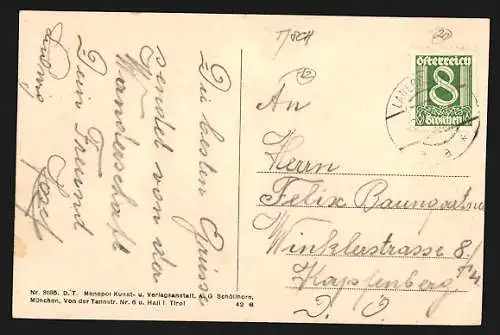 Die besten Grüsse
sendet von der
Wanderschaft
Dein Freund
Josef
Ludwig
T/SCH
20
10
österreich
8
Groschen
An
Herrn
Felix Baumgartner
Winklerstrasse 8/
Kapfenberg
Nr. 9185. D. T. Monopol Kunst- u. Verlagsanstalt, A. G Schöllhorn,
München, Von der Tannstr. Nr. 6 u. Hall i. Tirol 42 6